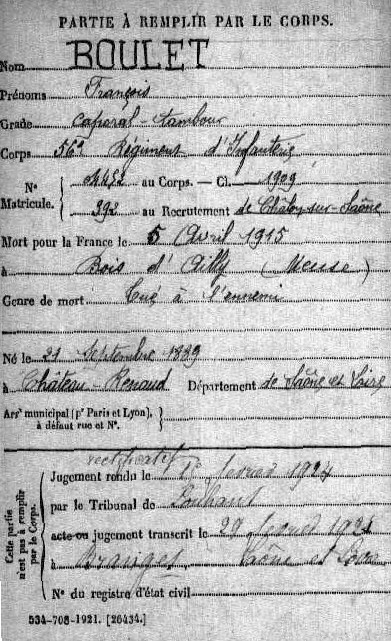 PARTIE À REMPLIR PAR LE CORPS.
Nom BOULET
Prénoms François
Grade Caporal-tambour
Corps 56e Régiment d'Infanterie
N° Matricule. { au Corps. — Cl. 1909
392 au Recrutement de Châlon-sur-Saône
Mort pour la France le 5 Avril 1915
à Bois d'Ailly (Meuse)
Genre de mort Tué à l'ennemi
Né le 21 Septembre 1889
à Château-Renaud Département de Saône et Loire
Arrt municipal (pr Paris et Lyon), à défaut rue et N°. }
Cette partie n'est pas à remplir par le Corps.
rectificatif
Jugement rendu le février 1924
par le Tribunal de Louhans
acte ou jugement transcrit le 29 1924
à Branges Saône et Loire
N° du registre d'état civil
534-708-1921. [26434.]